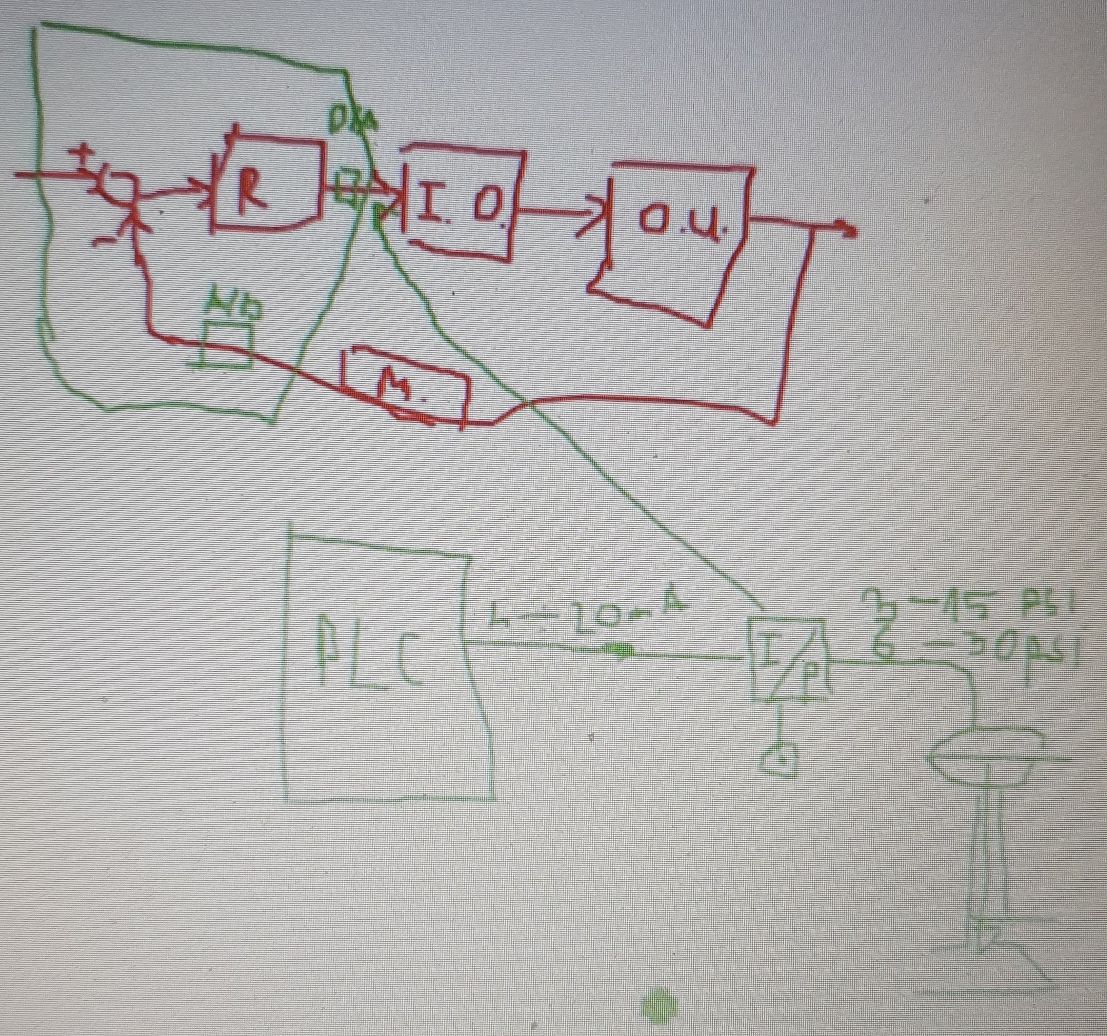 +
R
I. O.
O.U.
-
M.
PLC
4÷20mA
I/P
3-15 psi
6-30psi